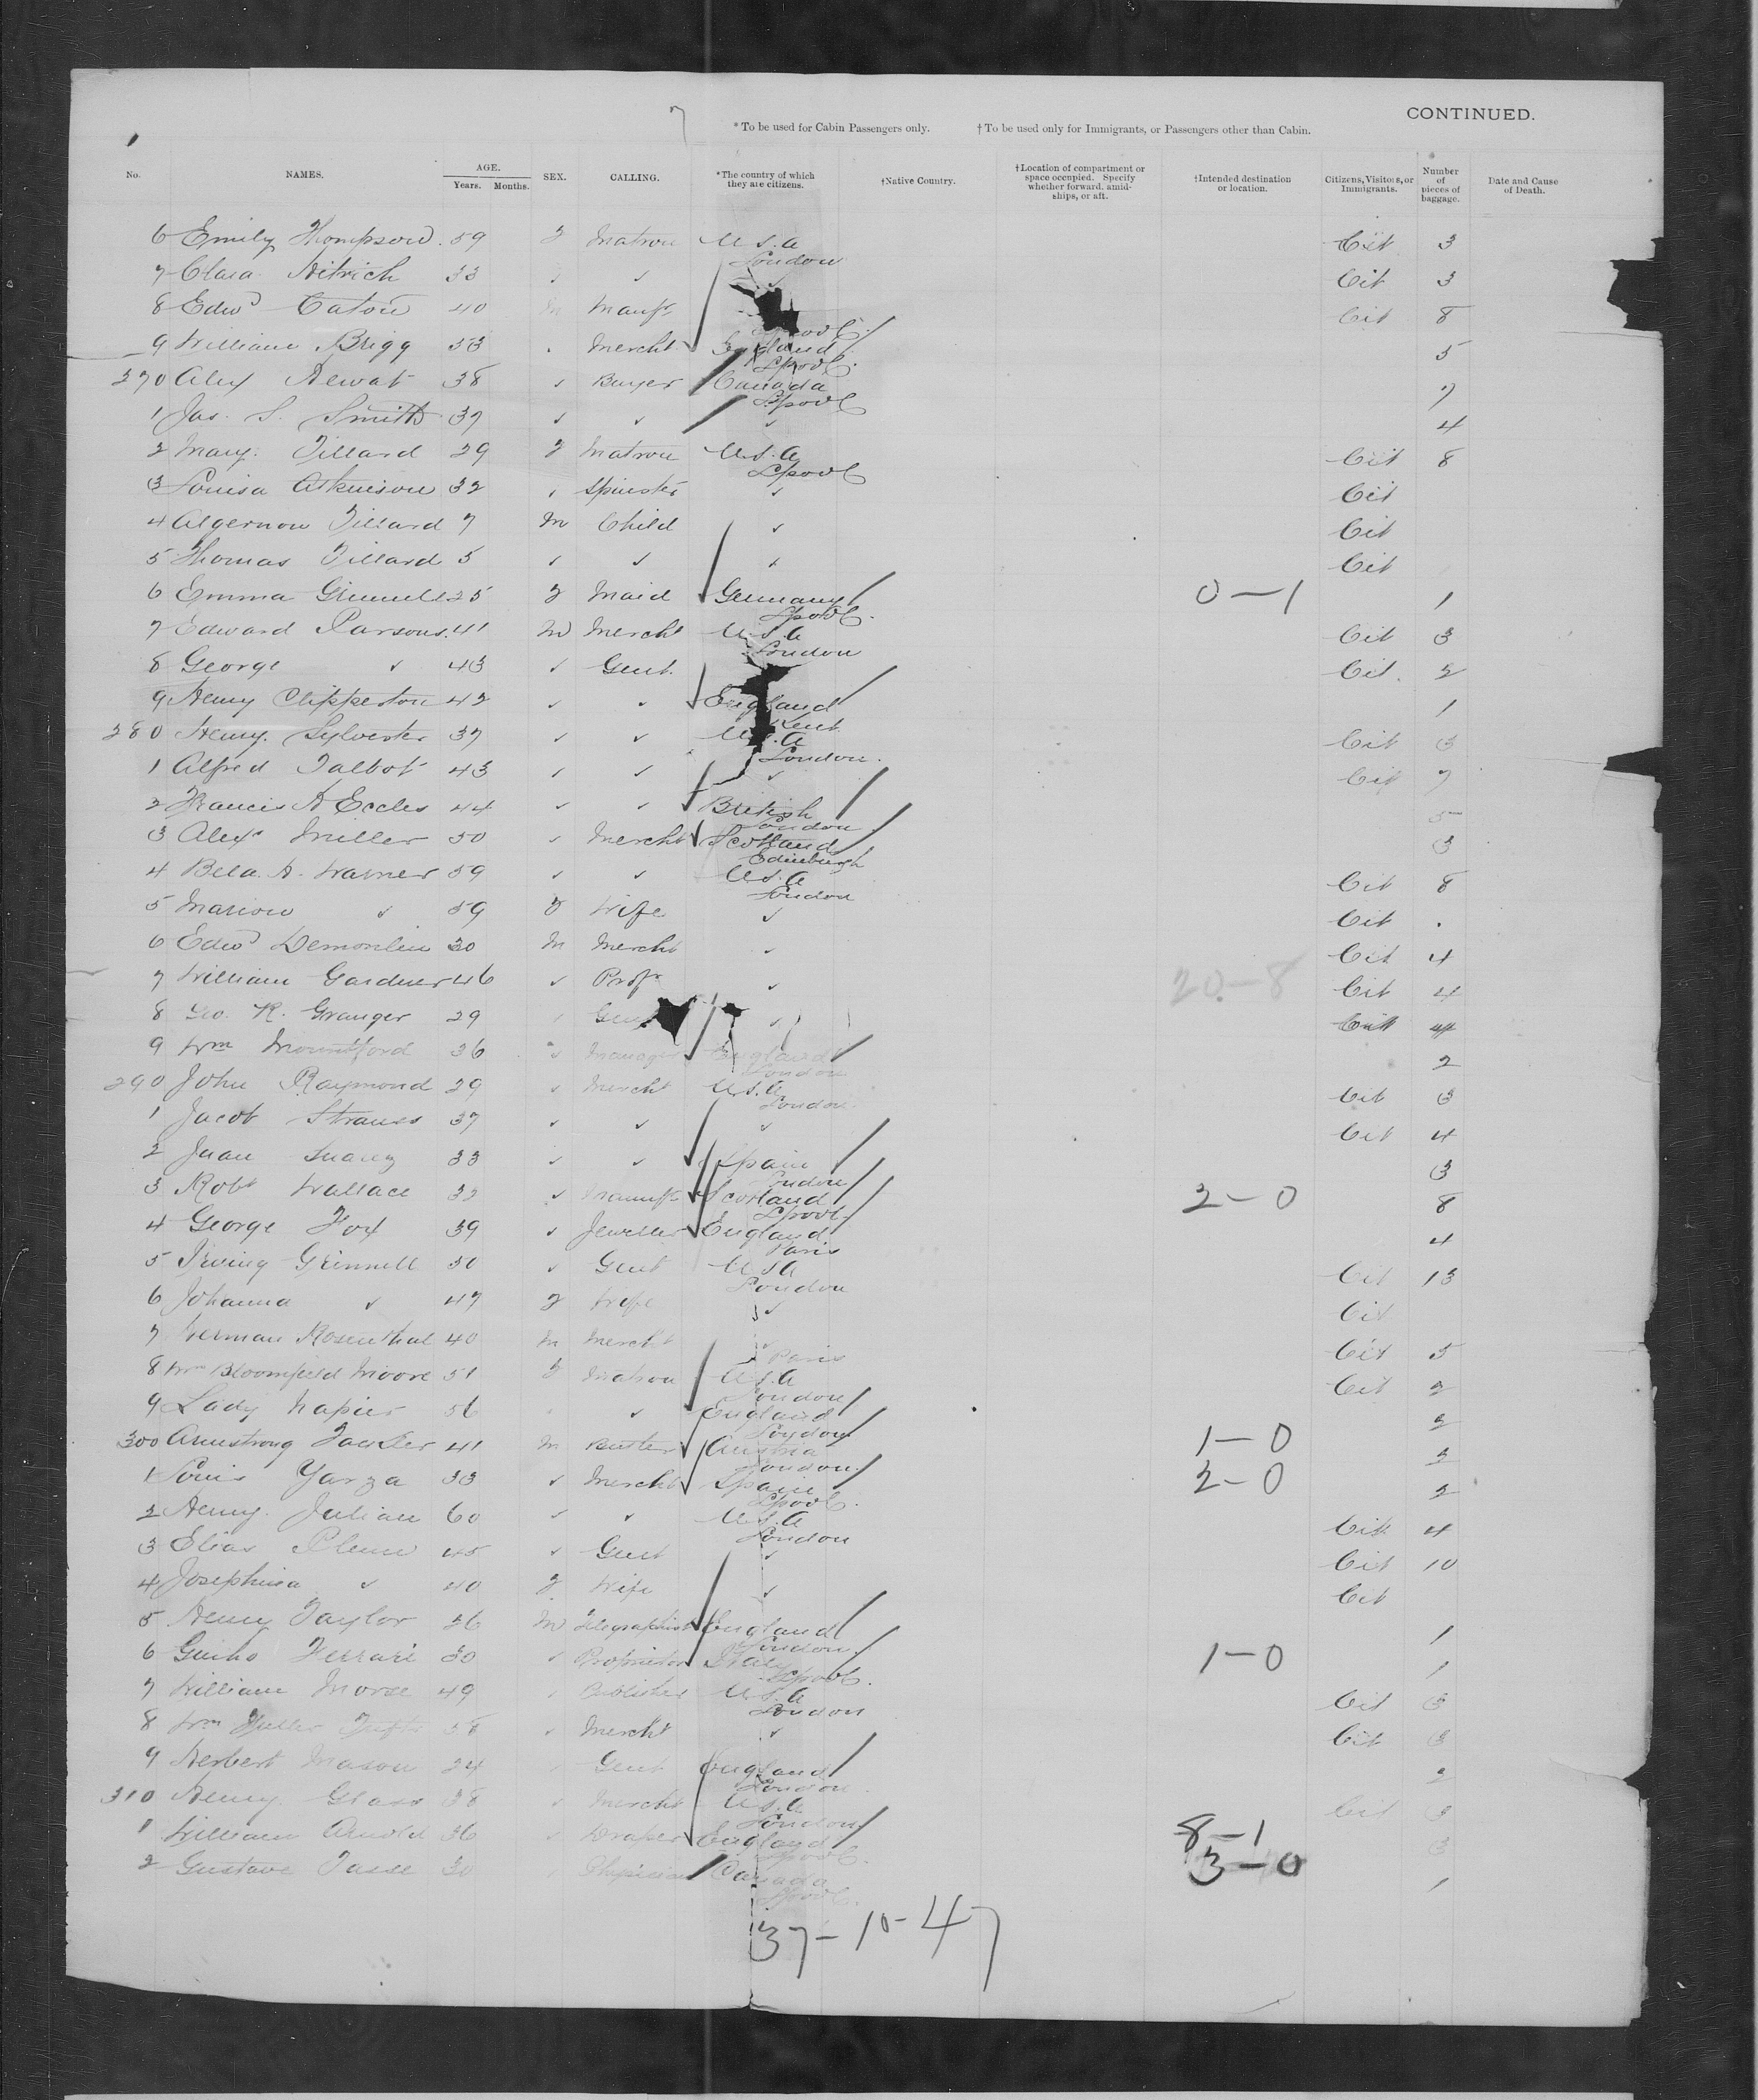 CONTINUED.
* To be used for Cabin Passengers only. † To be used only for Immigrants, or Passengers other than Cabin.
No. NAMES. AGE. Years. Months. SEX. CALLING. *The country of which they are citizens. †Native Country. †Location of compartment or space occupied. Specify whether forward, amidships, or aft. †Intended destination or location. Citizens, Visitors, or Immigrants. Number of pieces of baggage. Date and Cause of Death.
6 Emily Thompson 59 F Matron U.S.A London Cit 3
7 Clara 33 ✓ ✓ Cit 3
8 Edwd Caton 40 M Manfr Cit 8
9 William Brigg 53 Mercht England Lpool 5
270 Alex 38 ✓ Buyer Canada Lpool 7
1 Jas. S. Smith 37 ✓ ✓ ✓ 4
2 Mary Tillard 29 F Matron U.S.A Lpool Cit 8
3 Louisa Atkinson 32 ✓ Spinster ✓ Cit
4 Algernon Tillard 7 M Child ✓ Cit
5 Thomas Tillard 5 ✓ ✓ ✓ Cit
6 Emma 25 F Maid Germany Lpool 0-1 1
7 Edward Parsons 41 M Mercht U.S.A London Cit 3
8 George ✓ 43 ✓ Gent Cit 2
9 Henry Clipperton 42 ✓ ✓ England Kent 1
280 Henry Sylvester 37 ✓ ✓ U.S.A London Cit 3
1 Alfred Talbot 43 ✓ ✓ ✓ Cit 7
2 Francis A Eccles 44 ✓ ✓ British London 5
3 Alexr Miller 50 ✓ Mercht Scotland Edinburgh 3
4 Bela. A. Warner 59 ✓ ✓ U.S.A London Cit 8
5 Marion ✓ 59 F Wife ✓ Cit .
6 Edwd 30 M Mercht ✓ Cit 4
7 William Gardner 46 ✓ Profr ✓ 20-8 Cit 4
8 Geo. R. Granger 29 Gent ✓ Cit 4
9 Wm Mountford 36 ✓ Manager England London 2
290 John Raymond 29 ✓ Mercht U.S.A London Cit 3
1 Jacob Strauss 37 ✓ ✓ ✓ Cit 4
2 Juan Suarez 33 ✓ ✓ Spain London 3
3 Robt Wallace 32 ✓ Manufr Scotland Lpool 2-0 8
4 George Fox 39 ✓ Jeweller England Paris 4
5 Irving Grinnell 50 ✓ Gent U.S.A London Cit 13
6 Johanna ✓ 47 F Wife ✓ Cit
7 Herman Rosenthal 40 M Mercht ✓ Paris Cit 5
8 Bloomfield Moore 51 F Matron U.S.A London Cit 2
9 Lady Napier 56 ✓ England London 2
300 Armstrong 41 M Butler Austria London 1-0 2
1 Louis Yarza 33 ✓ Mercht Spain Lpool 2-0 2
2 Henry Julian 60 ✓ ✓ U.S.A London Cit 4
3 Elias 45 ✓ Gent ✓ Cit 10
4 Josephina ✓ 40 F Wife ✓ Cit
5 Henry Taylor 26 M Telegraphist England London 1
6 Ferrari 30 ✓ Proprietor Italy Lpool 1-0 1
7 William Morse 49 Publisher U.S.A London Cit 3
8 Wm 58 ✓ Mercht ✓ Cit 3
9 Herbert Mason 24 Gent England London 2
310 Henry Glass 38 ✓ Mercht U.S.A London Cit 3
1 William Arnold 36 Draper England Lpool 8-1 3
2 Gustave Tasse 30 Physician Canada Lpool 3-0 1
37-10-47